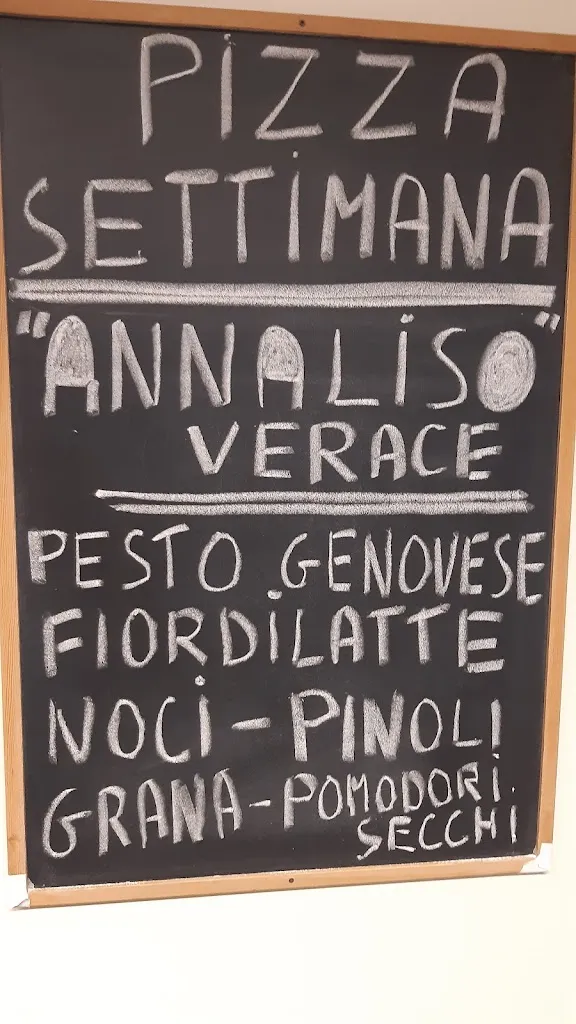 PIZZA
SETTIMANA
"ANNALISO"
VERACE
PESTO GENOVESE
FIORDILATTE
NOCI - PINOLI
GRANA - POMODORI
SECCHI